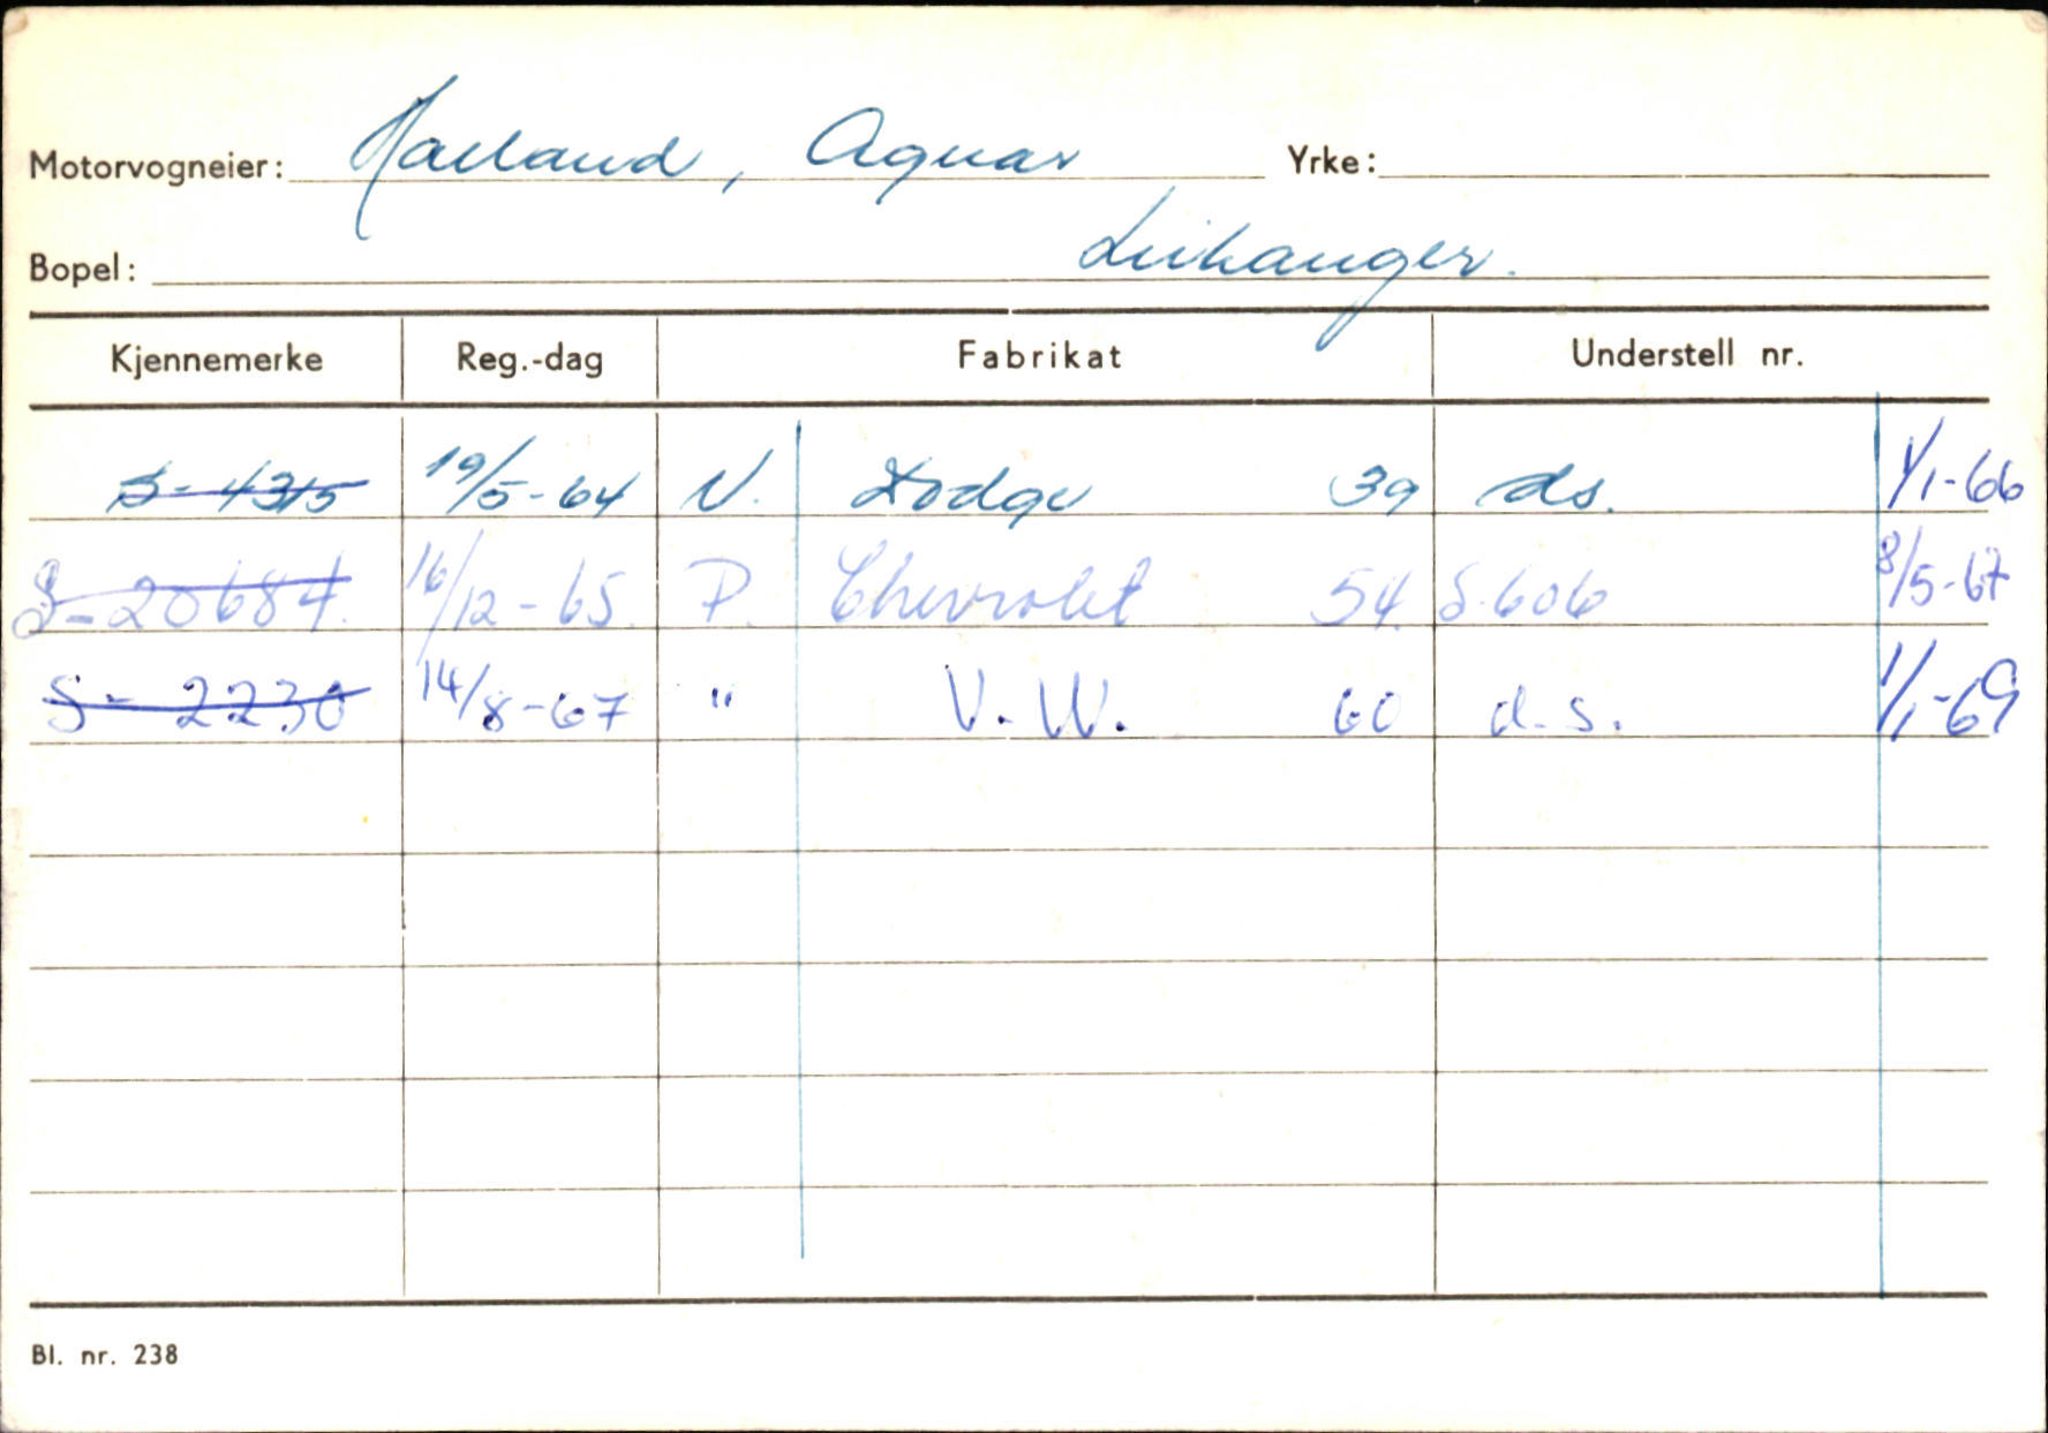 Motorvogneier: Agnar Yrke:
Bopel: Leikanger.
Kjennemerke Reg.-dag Fabrikat Understell nr.
S-4315 19/5-64 V. Dodge 39 ds. 1/1-66
S-20684. 16/12-65. P. Chevrolet 54. S.606 8/5-67
S-2230 14/8-67 " V.W. 60 d.s. 1/1-69
Bl. nr. 238